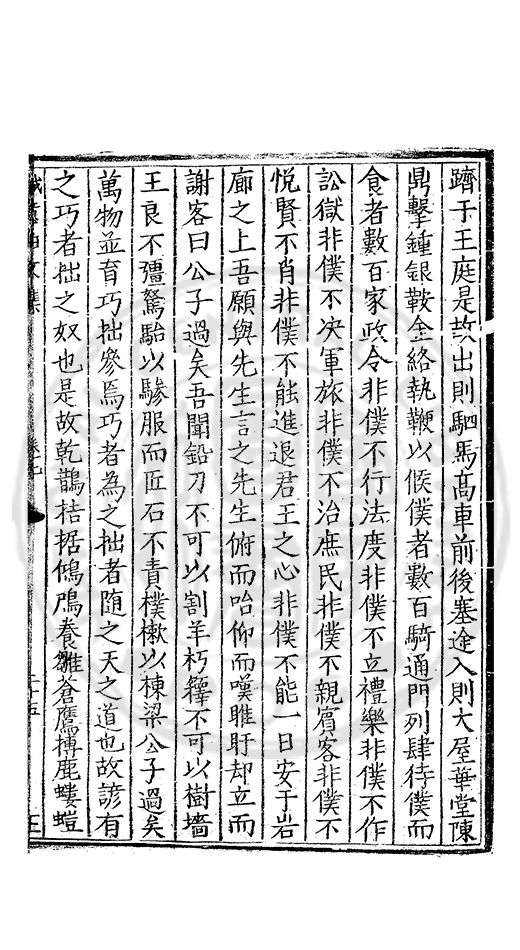 躋于王庭是故出則駟馬高車前後塞途入則大屋華堂陳
鼎擊鍾銀鞍金絡執鞭以候僕者數百騎通門列肆待僕而
食者數百家政令非僕不行法度非僕不立禮樂非僕不作
訟獄非僕不决軍旅非僕不治庶民非僕不親賔客非僕不
悅賢不肖非僕不能進退君王之心非僕不能一日安于岩
廊之上吾願與先生言之先生俯而咍仰而嘆睢盱却立而
謝客曰公子過矣吾聞鉛刀不可以割羊朽籜不可以樹墻
王良不彊駑駘以驂服而匠石不責樸樕以棟梁公子過矣
萬物並育巧拙參焉巧者為之拙者随之天之道也故諺有
之巧者拙之奴也是故乾鵲桔据鳲鳩養雛蒼鷹搏鹿螻螘
文集
二十五